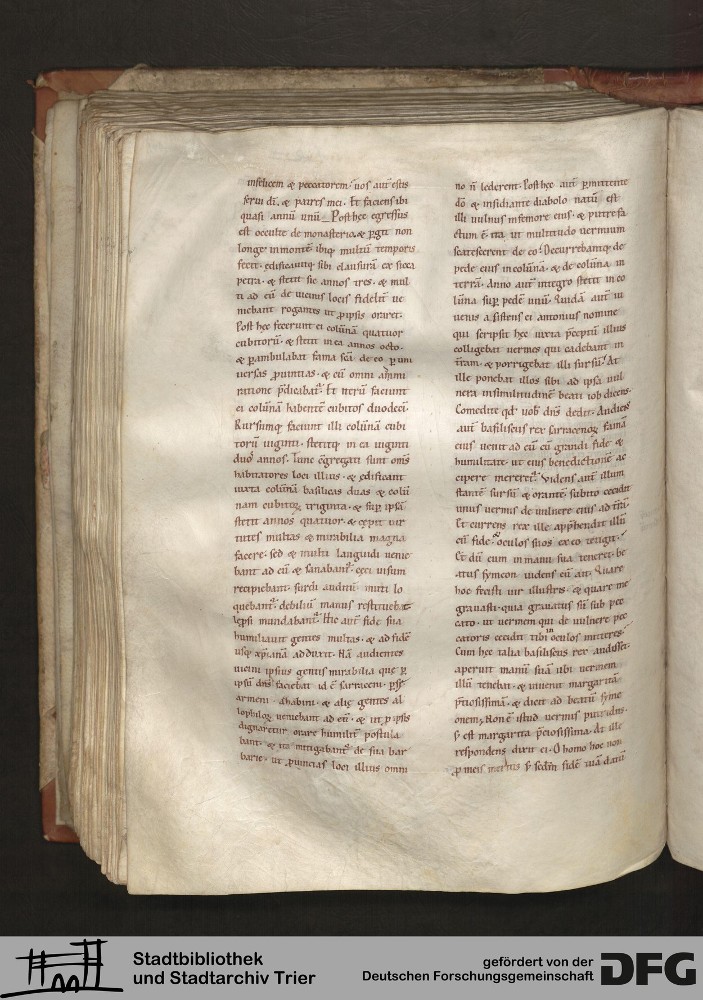 infelicem & peccatorem. uos aut̄ estis
serui dī. & patres mei. Et faciens ibi
quasi annū unū. Post hęc egressus
est occulte de monasterio. & ꝑgit non
longe in monte ibiq; multū temporis
fecit. edificauitq; sibi clausurā ex sicca
petra. & stetit sic annos tres. & mul
ti ad eū de uicinis locis fideliт ue
niebant rogantes ut ꝓ ipsis oraret.
Post hęc fecerunt ei colūnā quatuor
cubitorū. & stetit in ea annos octo.
& ꝑambulabat fama scā de eo ꝑ uni
uersas ꝓuintias. & eū omni ammi
ratione p̄dicabat᷑. Et iterū faciunt
ei colūnā habentē cubitos duodeci.
Rursumq; faciunt illi colūnā cubi
torū uiginti. stetitq; in ea uiginti
duos annos. Tunc cōgregati sunt om̄s
habitatores loci illius. & edificant
iuxta colūnā basilicas duas & colū
nam cubitoꝝ triginta. & sup̄ ipsā
stetit annos quatuor. & cepit uir
tutes multas & mirabilia magna
facere. sed & multi languidi uenie
bant ad eū & sanabant᷑. ceci uisum
recipiebant. surdi auditū. muti lo
quebant᷑. debiliū manus restituebat᷑
lep̄si mundabant᷑. Hic aut̄ fide sua
humiliauit gentes multas. & ad fidē
usq; xp̄ianā adduxit. Nā audientes
uicini ipsius gentis mirabilia que ꝑ
ipsū dn̄s faciebat id ē sarraceni. ꝑse
armeni. & alię gentes al
lophiloꝝ ueniebant ad eū. & ut ꝑ ipsis
dignaretur orare humilit̄ postula
bant. & ita mitigabant᷑ de sua bar
barie. ut ꝓuincias loci illius omni
no n̄ lederent. Post hęc aut̄ ꝑmittente
dō & insidiante diabolo natū est
illi uulnus in femore eius. & putrefa
ctum ē ita ut multitudo uermium
scatescerent de eo. Decurrebantq; de
pede eius in colūnā. & de colūna in
terrā. Anno aut̄ integro stetit in co
lūna sup̄ pedē unū. Quidā aut̄ iu
uenis assistens ei antonius nomine
qui scripsit hęc iuxta p̄ceptū illius
colligebat uermes qui cadebant in
t̄ram. & porrigebat illi sursū. At
ille ponebat illos sibi ad ipsa uul
nera in similitudinē beati iob dicens.
Comedite qd̓ uob̓ dn̄s dedit. Audiens
aut̄ basiliscus rex sarracenoꝝ famā
eius uenit ad eū cū grandi fide &
humilitate. ut eius benedictionē ac
cipere meretet᷑. Videns aut̄ illum
stantē sursū & orantē. subito cecidit
unus uermis de uulnere eius ad t̄rā.
Et currens rex ille app̄hendit illū
cū fide. & oculos suos ex eo tetigit.
Et dū eum in manu sua teneret. be
atus symeon uidens eū ait. Quare
hoc fecisti uir illustris. & quare me
grauasti. quia grauatus sū sub pec
cato. ut uermem qui de uulnere pec
catoris cecidit tibi in oculos mitteres.
Cum hęc talia basiliscus rex audisset.
aperuit manū suā ubi uermem
illū tenebat. & inuenit margaritā
p̄ciosissimā. & dicit ad beatū syme
onem. Non ē istud uermis putridus.
s; est margarita p̄ciosissima. At ille
respondens dixit ei. O homo hoc non
ꝓ meis meritis s; scdm fidē tuā datū
Stadtbibliothek
und Stadtarchiv Trier
gefördert von der
Deutschen Forschungsgemeinschaft
DFG